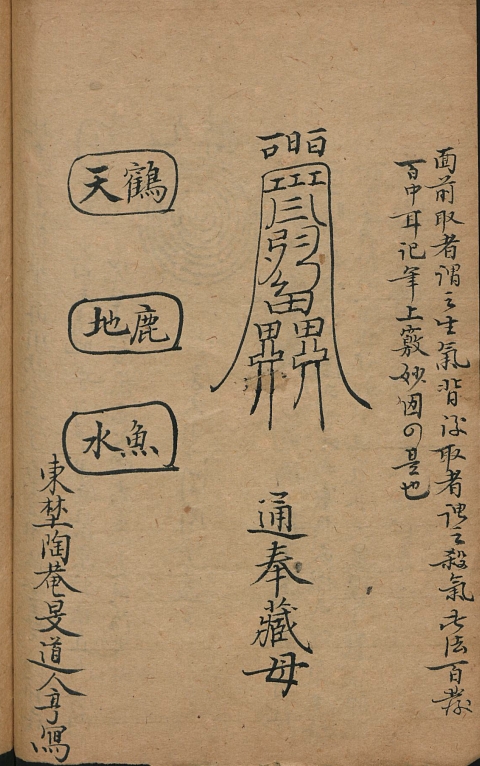 面前取者謂之生氣背後取者謂之殺氣此法百發
百中耳記筆上竅妙因の是也
通奉藏母
天鶴
地鹿
水魚
東埜陶菴旻道人亨寫